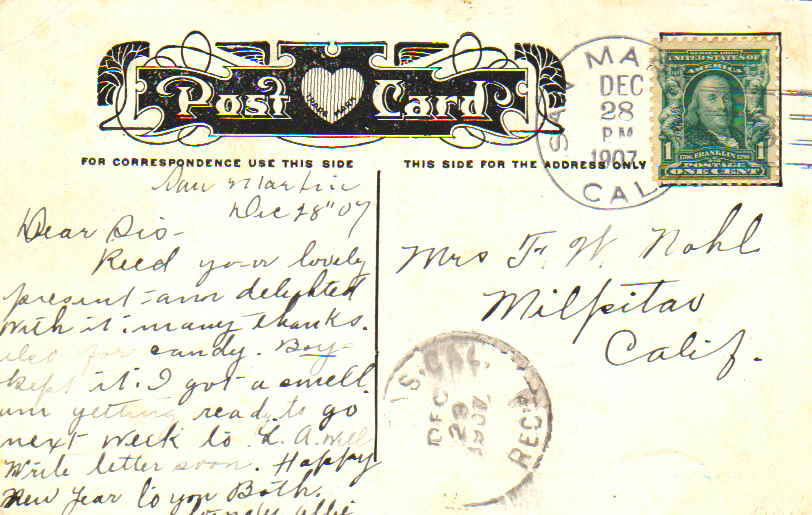 Post Card
TRADE MARK
FOR CORRESPONDENCE USE THIS SIDE
THIS SIDE FOR THE ADDRESS ONLY
SAN MAR
DEC
28
PM
1907
CAL
UNITED STATES OF
AMERICA
1 FRANKLIN 1
POSTAGE
ONE CENT
San Martin
Dec 28" 07
Dear Sis-
Recd your lovely
present - am delighted
with it. many thanks.
also for candy. Boys
kept it. I got a smell.
am getting ready to go
next week to L. A. will
write letter soon. Happy
New Year to you Both.
Mrs F. W. Nohl
Milpitas
Calif.
S. CAL.
DEC
29
1907
REC'D